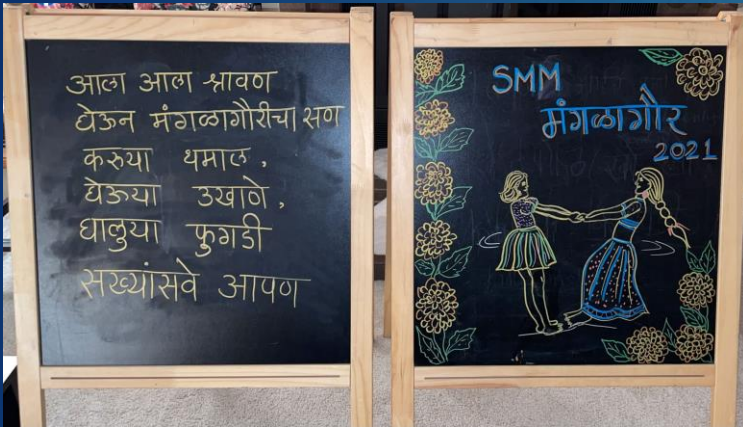 आला आला श्रावण
घेऊन मंगळागौरीचा सण
करुया धमाल,
घेऊया उखाणे,
घालुया फुगडी
सख्यांसवे आपण
SMM
मंगळागौर
2021